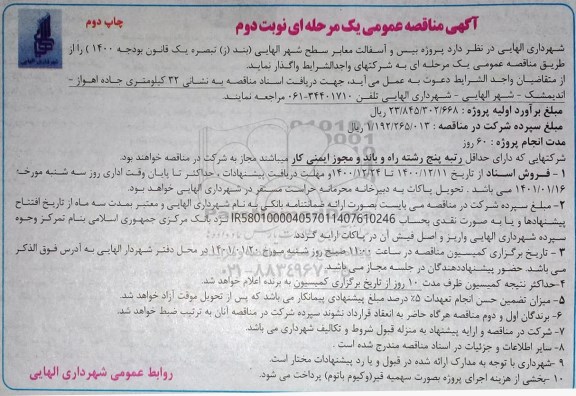 آگهی مناقصه عمومی یک مرحله ای نوبت دوم
چاپ دوم
شهرداری الهایی در نظر دارد پروژه بیس و آسفالت معابر سطح شهر الهایی (بند (ز) تبصره یک قانون بودجه ۱۴۰۰ ) را از
طریق مناقصه عمومی یک مرحله ای به شرکتهای واجدالشرایط واگذار نماید.
از متقاضیان واجد الشرایط دعوت به عمل می آید، جهت دریافت اسناد مناقصه به نشانی ۳۲ کیلومتری جاده اهواز -
اندیمشک - شهر الهایی - شهرداری الهایی تلفن ۳۴۴۰۱۷۱۰-۰۶۱ مراجعه نمایند.
مبلغ برآورد اولیه پروژه : ۲۳/۸۴۵/۳۰۲/۶۶۸ ریال
مبلغ سپرده شرکت در مناقصه : ۱/۱۹۲/۲۶۵/۰۱۳ ریال
مدت انجام پروژه : ۶۰ روز
شرکتهایی که دارای حداقل رتبه پنج رشته راه و باند و مجوز ایمنی کار میباشند مجاز به شرکت در مناقصه خواهند بود.
۱- فروش اسناد از تاریخ ۱۴۰۰/۱۲/۱۱ تا ۱۴۰۰/۱۲/۲۴ و مهلت دریافت پیشنهادات ، حداکثر تا پایان وقت اداری روز سه شنبه مورخه
۱۴۰۱/۰۱/۱۶ می باشد . تحویل پاکات به دبیرخانه محرمانه حراست مستقر در شهرداری الهایی خواهد بود.
۲- مبلغ سپرده شرکت در مناقصه می بایست بصورت ارائه ضمانتنامه بانکی به نام شهرداری الهایی و معتبر بمدت سه ماه از تاریخ افتتاح
پیشنهادها و یا به صورت نقدی بحساب IR580100004057011407610246 نزد بانک مرکزی جمهوری اسلامی بنام تمرکز وجوه
سپرده شهرداری الهایی واریز و اصل فیش آن در پاکات ارایه گردد
۳ - تاریخ برگزاری کمیسیون مناقصه در ساعت ۱۱:۰۰ صبح روز شنبه مورخ ۱۴۰۱/۰۱/۲۰ در محل دفتر شهردار الهایی به آدرس فوق الذکر
می باشد. حضور پیشنهاددهندگان در جلسه مجاز می باشد.
۴-حداکثر نتیجه کمیسیون ظرف مدت ۱۰ روز از تاریخ برگزاری کمیسیون به برنده اعلام خواهد شد.
۵- میزان تضمین حسن انجام تعهدات ۵٪ درصد مبلغ پیشنهادی پیمانکار می باشد که پس از تحویل موقت آزاد خواهد شد.
۶- برندگان اول و دوم مناقصه هرگاه حاضر به انعقاد قرارداد نشوند سپرده شرکت در مناقصه آنان به ترتیب ضبط خواهد شد.
۷- شرکت در مناقصه و ارایه پیشنهاد به منزله قبول شروط و تکالیف شهرداری می باشد.
۸- سایر اطلاعات و جزئیات در اسناد مناقصه مندرج شده است .
۹- شهرداری با توجه به مدارک ارائه شده در قبول و یا رد پیشنهادات مختار است.
۱۰-بخشی از هزینه اجرای پروژه بصورت سهمیه قیر(وکیوم باتوم) پرداخت می شود.
روابط عمومی شهرداری الهایی